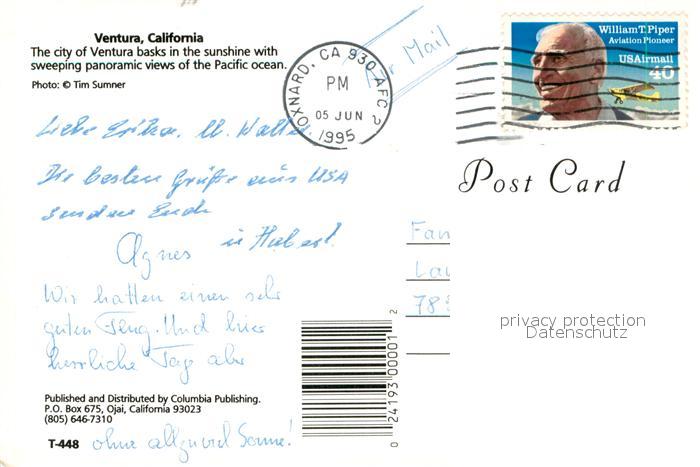 Ventura, California
The city of Ventura basks in the sunshine with
sweeping panoramic views of the Pacific ocean.
Photo: © Tim Sumner
Air Mail
OXNARD, CA 930 AFC 2
PM
05 JUN
1995
William T. Piper
Aviation Pioneer
USAirmail
40
Post Card
Liebe Erika, u. Walter
Die besten Grüße aus USA
senden Euch
Agnes u Hubert
Wir hatten einen sehr
guten Flug. Und hier
herrliche Tage aber
ohne allzuviel Sonne!
Fam
Lau
78
privacy protection
Datenschutz
Published and Distributed by Columbia Publishing.
P.O. Box 675, Ojai, California 93023
(805) 646-7310
T-448
0 24193 00001 2